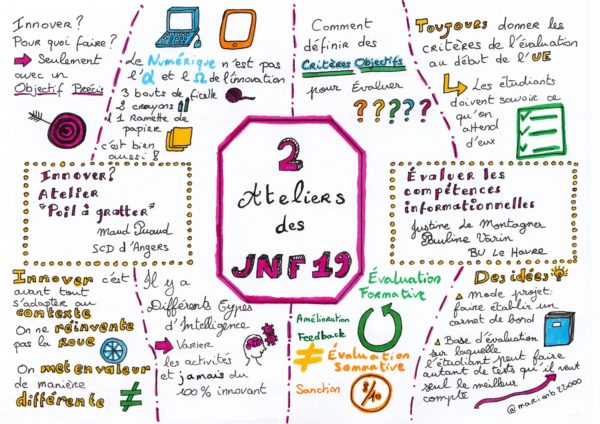 Innover?
Pour quoi faire?
Seulement
avec un
Objectif Précis
Le Numérique n'est pas
l'α et l'Ω de l'innovation
3 bouts de ficelle
2 crayons
1 Ramette de
papier
c'est bien
aussi!
Comment
définir des
Critères Objectifs
pour Évaluer
? ? ? ? ?
Toujours donner les
critères de l'évaluation
au début de l'UE
Les étudiants
doivent savoir ce
qu'on
attend
d'eux
Innover?
Atelier
"Poil à gratter"
Maud Puaud
SCD d'Angers
2
Ateliers
des
JNF19
Évaluer les
compétences
informationnelles
Justine De Montagner
Pauline Varin
BU Le Havre
Innover c'est
avant tout
s'adapter au
contexte
On ne réinvente
pas la roue
On met en valeur
de manière
différente ≠
Il y a
Différents Types
d'Intelligence
Varier
les activités
et jamais du
100% innovant
Évaluation
Formative
Amélioration
Feedback
≠ Évaluation
Sommative
Sanction
8/10
Des idées:
Mode projet:
faire établir un
carnet de bord
Base d'évaluation
sur laquelle
l'étudiant peut faire
autant de tests qu'il veut
seul le meilleur
compte
@marionb22000